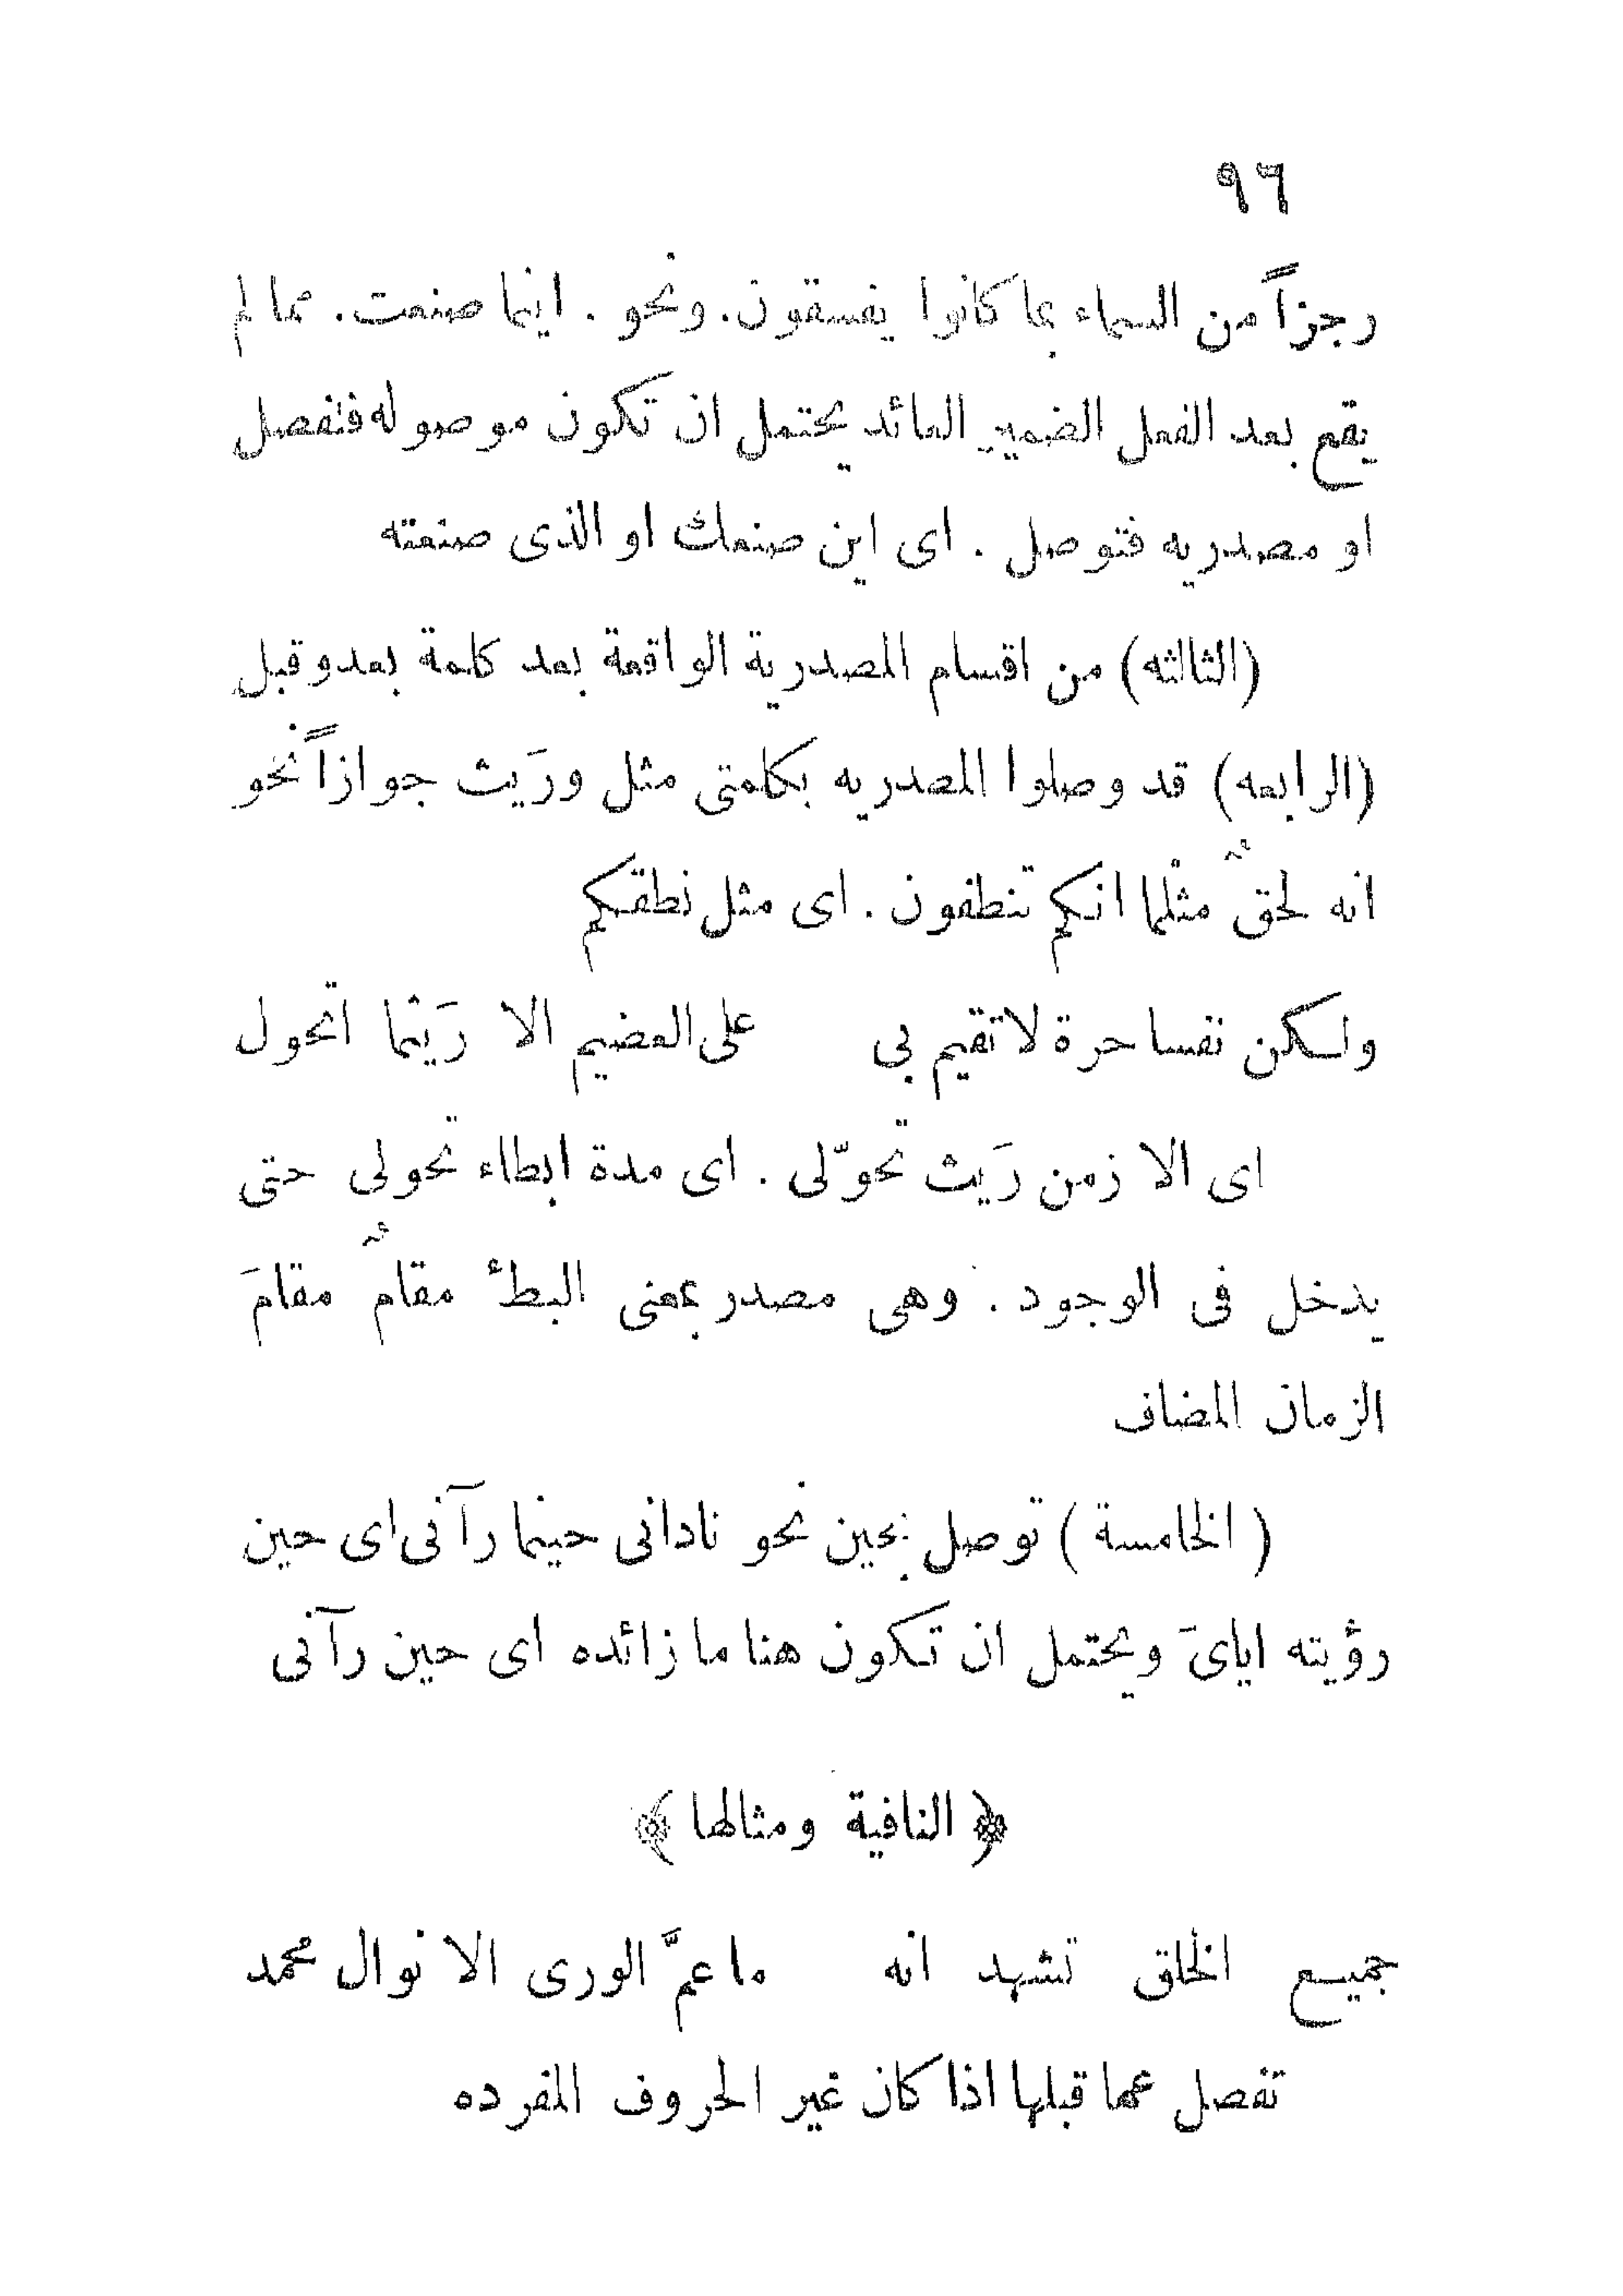 ٩٦
رجزاً من السماء بما كانوا يفسقون. ونحو . اينما صنعت. مما لم
يقع بعد الفعل الضمير العائد يحتمل ان تكون موصوله فتفصل
او مصدريه فتوصل . اى اين صنعك او الذى صنعته
(الثالثه) من اقسام المصدرية الواقعة بعد كلمة بعد وقبل
(الرابعه) قد وصلوا المصدريه بكلمتى مثل ورَيث جوازاً نحو
انه لحقٌ مثلما انكم تنطفون . اى مثل نطقكم
ولكن نفسا حرة لا تقيم بى على العضيم الا رَيثما اتحول
اى الا زمن رَيث تحوّلى . اى مدة ابطاء تحولى حتى
يدخل فى الوجود . وهى مصدر بمعنى البطئ مقامٌ مقامَ
الزمان المضاف
( الخامسة ) توصل بحين نحو نادانى حينما رآنى اى حين
رؤيته اياىَ ويحتمل ان تكون هنا ما زائده اى حين رآنى
﴿ النافية ومثالها ﴾
جميع الخلق تشهد انه ما عمَّ الورى الا نوال محمد
تفصل عما قبلها اذا كان غير الحروف المفرده